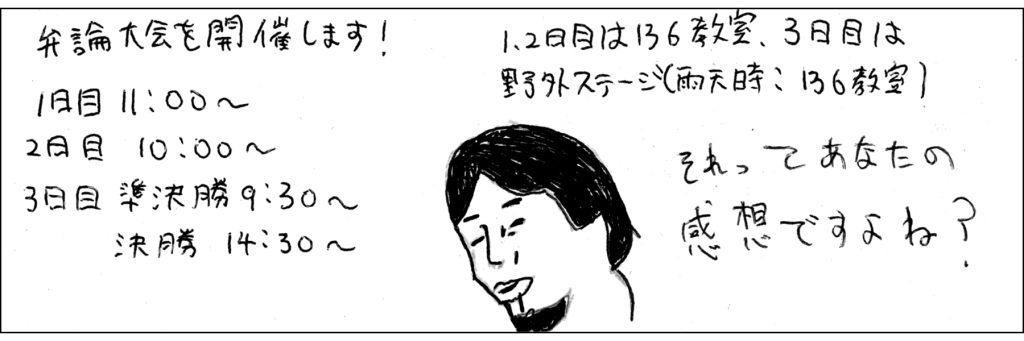 弁論大会を開催します!
1日目 11:00〜
2日目 10:00〜
3日目 準決勝 9:30〜
決勝 14:30〜
1、2日目は136教室、3日目は
野外ステージ(雨天時:136教室)
それってあなたの
感想ですよね?